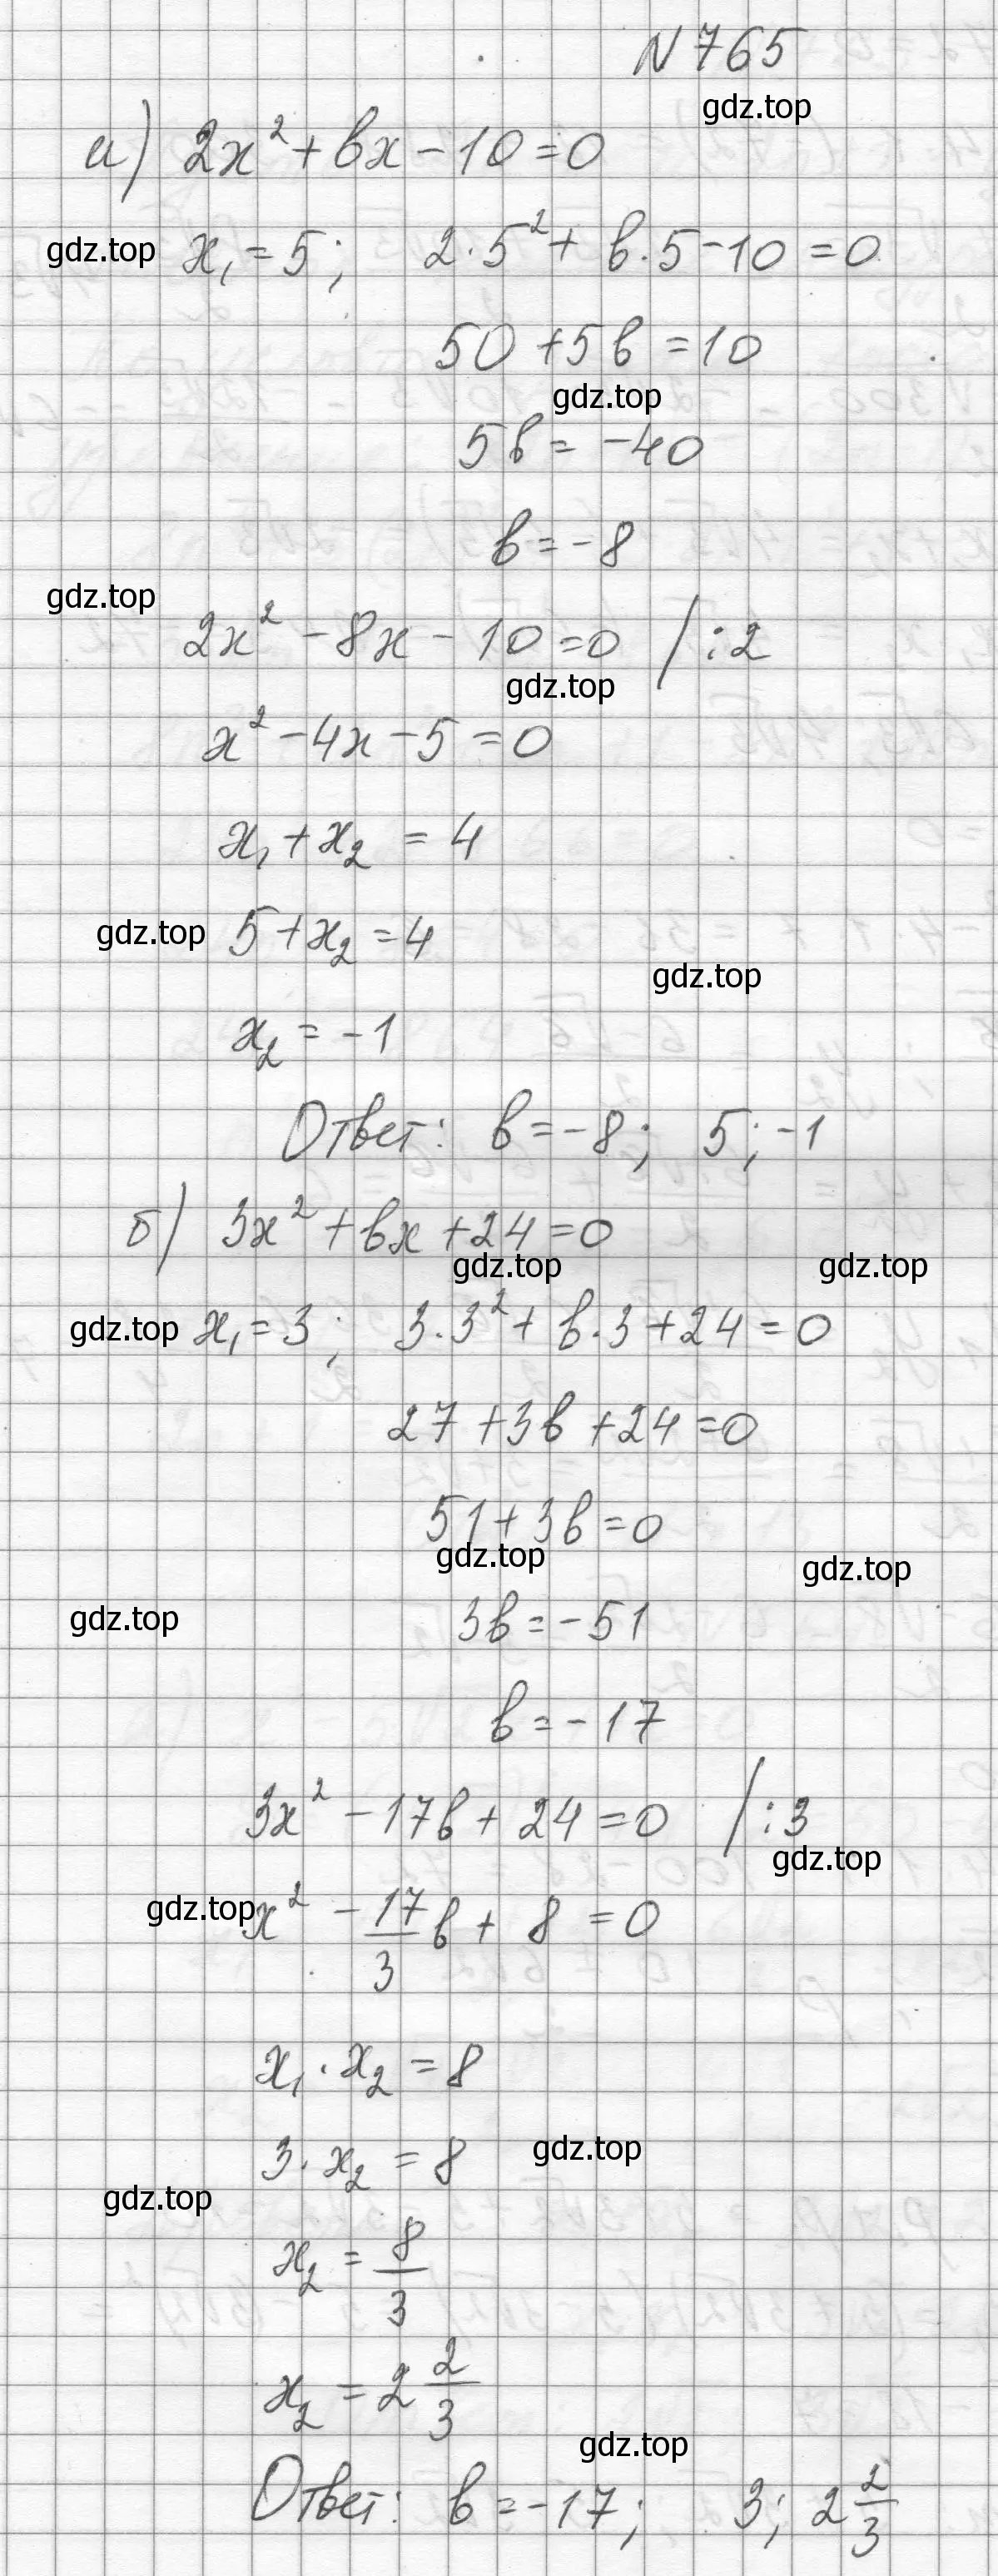 N 765
gdz.top
а) 2x² + bx - 10 = 0
gdz.top x₁ = 5; 2·5² + b·5 - 10 = 0
50 + 5b = 10
gdz.top
5b = -40
b = -8
gdz.top
2x² - 8x - 10 = 0 / :2
gdz.top
x² - 4x - 5 = 0
x₁ + x₂ = 4
gdz.top 5 + x₂ = 4
gdz.top
x₂ = -1
Ответ: b = -8; 5; -1
б) 3x² + bx + 24 = 0
gdz.top gdz.top
gdz.top x₁ = 3; 3·3² + b·3 + 24 = 0
27 + 3b + 24 = 0
51 + 3b = 0
gdz.top gdz.top
gdz.top 3b = -51
b = -17
3x² - 17b + 24 = 0 / :3
gdz.top
gdz.top x² - 17/3 b + 8 = 0
x₁ · x₂ = 8
3 · x₂ = 8 gdz.top
gdz.top
x₂ = 8/3
x₂ = 2 2/3
gdz.top
Ответ: b = -17; 3; 2 2/3